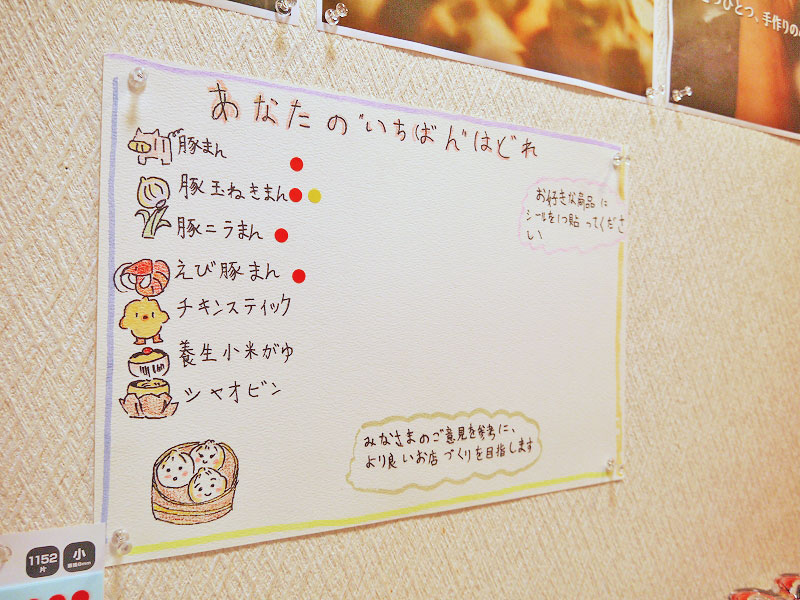 とつひとつ、手作りの
あなたの"いちばん"はどれ
豚まん
豚玉ねぎまん
豚ニラまん
えび豚まん
チキンスティック
養生小米がゆ
シャオビン
お好きな商品に
シールを1つ貼ってくださ
い
みなさまのご意見を参考に、
より良いお店づくりを目指します
1152
片
小